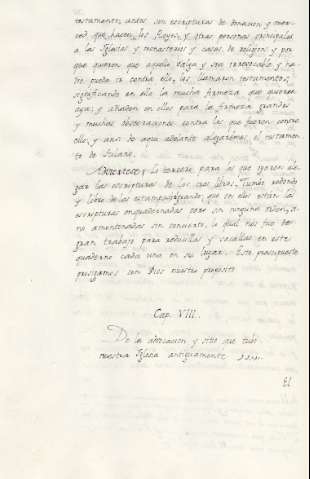 testamento, antes son escripturas de donacion y mer-
ced que hacen los Reyes, y otras personas principales
a las Iglesias y monasterios y casas de religion; y por
que quieren que aquello valga y sea irrevocable y na-
die pueda ir contra ello, las llamaron testamentos,
significando en ello la mucha firmeza que quieren
aya; y añaden en ellas para la firmeza grandes
y muchas obsecraciones contra los que fueren contra
ello, y aun de aqui adelante alegarémos el testamen-
to de
Advertere; lo tercero para los que quieren ale-
gar las escripturas de los tres libros, Tumbo redondo
y libro de las estampas que en ellos estan las
escripturas enquadernadas sin ninguna orden, si
no amontonadas sin concierto, lo qual nos fue de
gran trabajo para reducillas y sacallas en este
quaderno cada una en su lugar. Este presupuesto
prosigamos con Dios nuestro proposito
Cap. VIII.
De la advocacion y sitio que tubo
nuestra Iglesia antiguamente
El